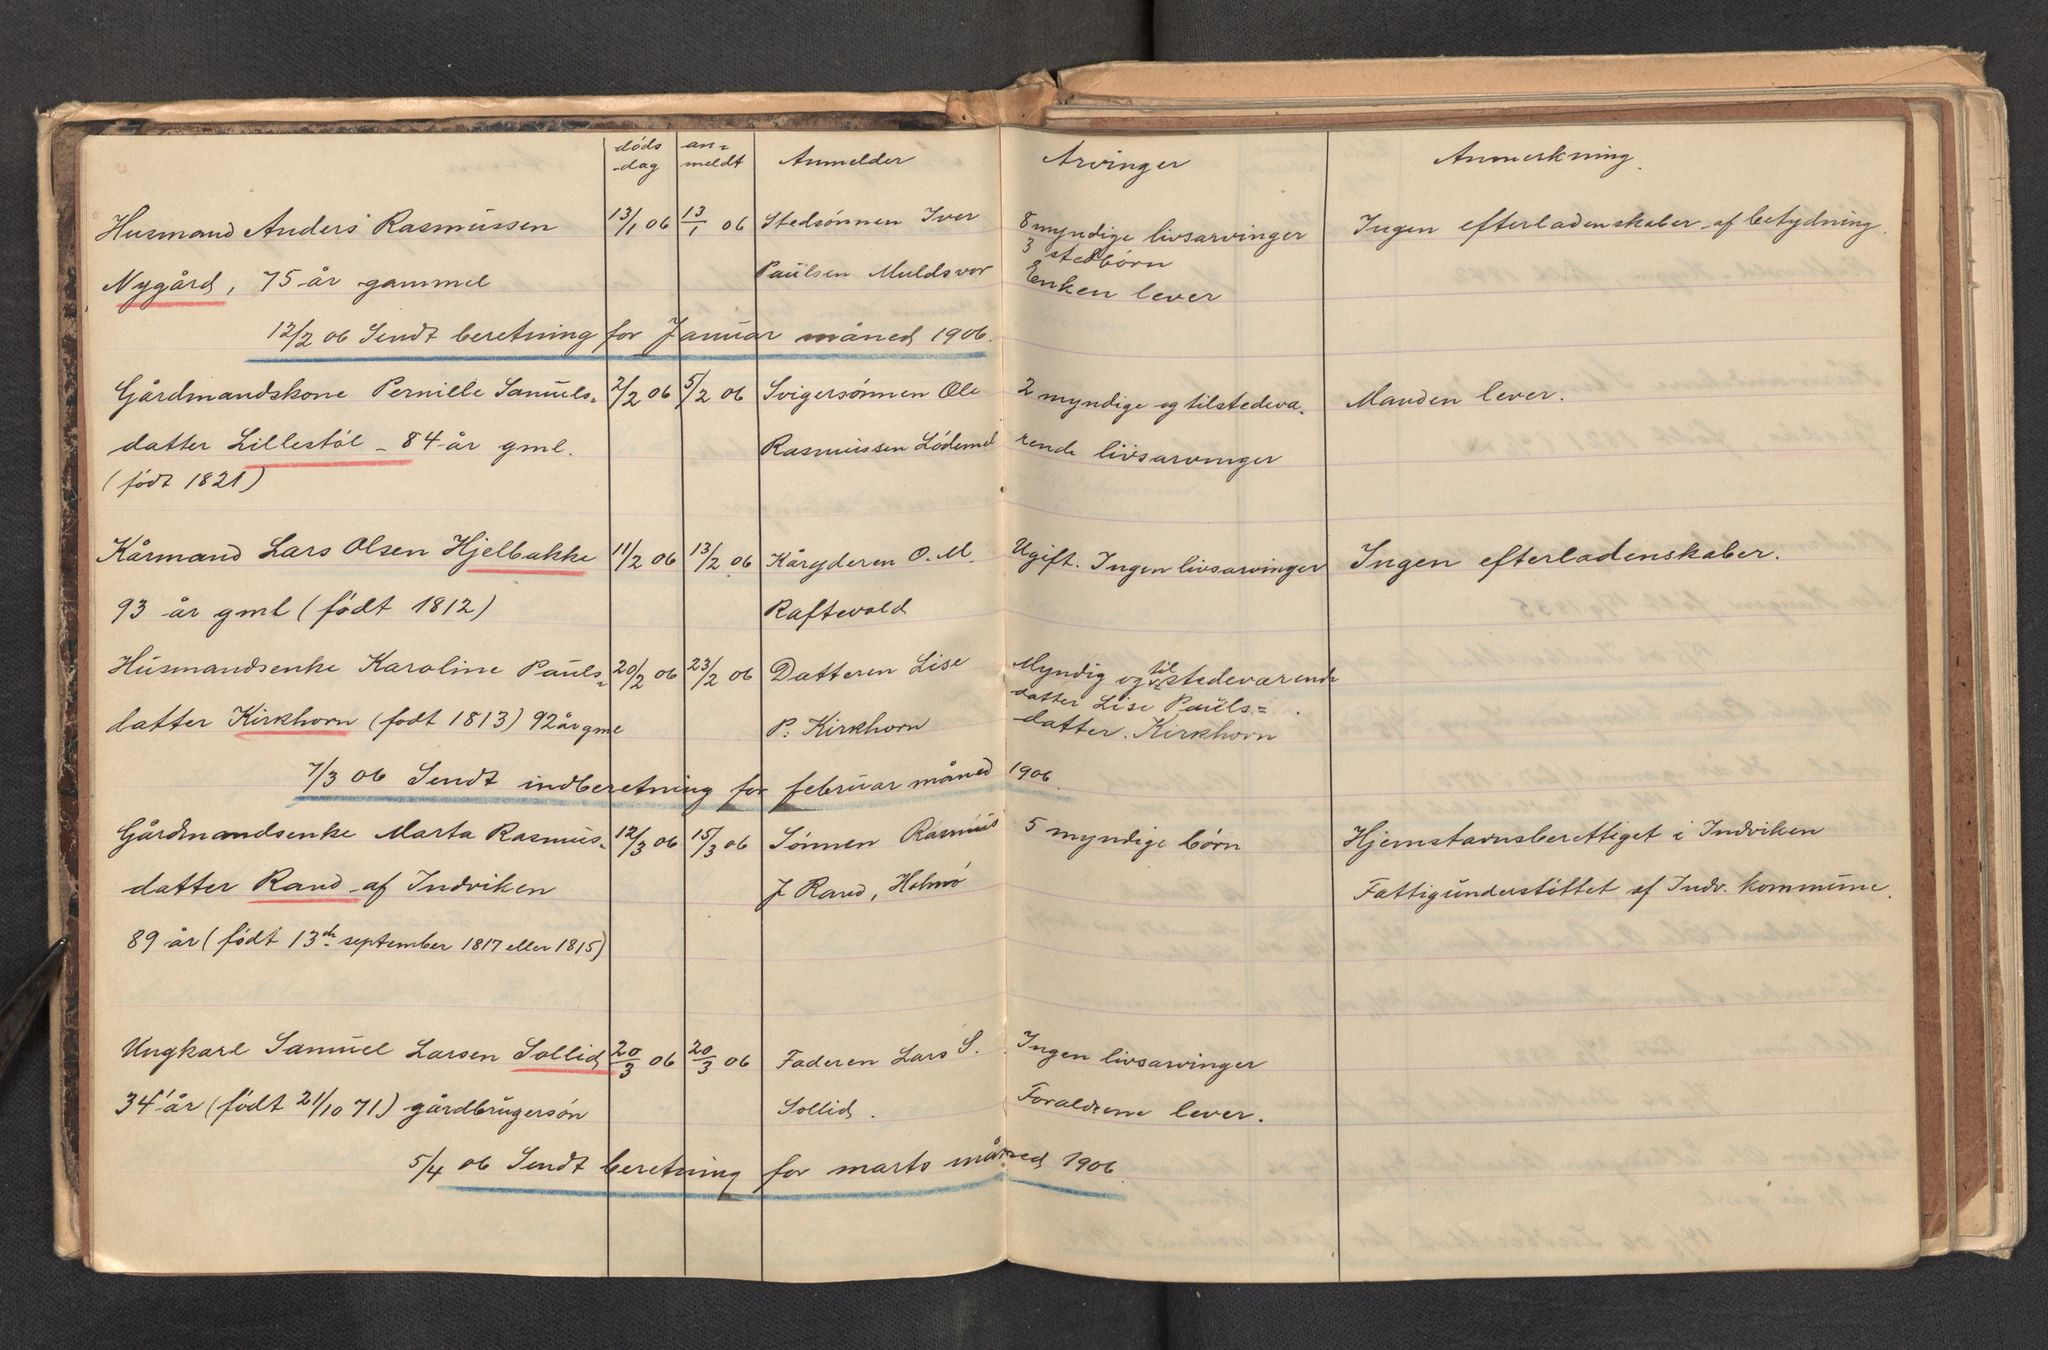 døds
dag
an=
meldt
Anmelder
Arvinger
Anmerkning.
Husmand Anders Rasmussen 13/1 06 13/1 06 Stedsønnen Iver 8 myndige livsarvinger Ingen efterladenskaber af betydning.
3 stedbørn
Nygård, 75 år gammel Paulsen Muldsvor Enken lever
12/2 06 Sendt beretning for Januar måned 1906.
Gårdmandskone Pernille Samuels= 2/2 06 5/2 06 Svigersønnen Ole 2 myndige og tilstedevæ- Manden lever.
datter Lillestøl - 84 år gml. Rasmussen Lødemel rende livsarvinger
(født 1821)
Kårmand Lars Olsen Hjelbakke 11/2 06 13/2 06 Kåryderen O. M. Ugift. Ingen livsarvinger Ingen efterladenskaber.
93 år gml (født 1812) Raftevold
Husmandsenke Karoline Pauls= 20/2 06 23/2 06 Datteren Lise Myndig og tilstedeværende
datter Lise Pauls=
datter Kirkhorn (født 1813) 92 år gml P. Kirkhorn datter Kirkhorn
7/3 06 Sendt indberetning for februar måned 1906.
Gårdmandsenke Marta Rasmus= 12/3 06 15/3 06 Sønnen Rasmus 5 myndige børn Hjemstavnsberettiget i Indviken
datter Rand af Indviken J Rand, Holmø Fattigunderstøttet af Indv. kommune.
89 år (født 13de september 1817 eller 1815)
Ungkarl Samuel Larsen Sollid 20/3 06 20/3 06 Faderen Lars S. Ingen livsarvinger
34 år (født 21/10 71) gårdbrugersøn Sollid. Forældrene lever.
5/4 06 Sendt beretning for marts måned 1906.